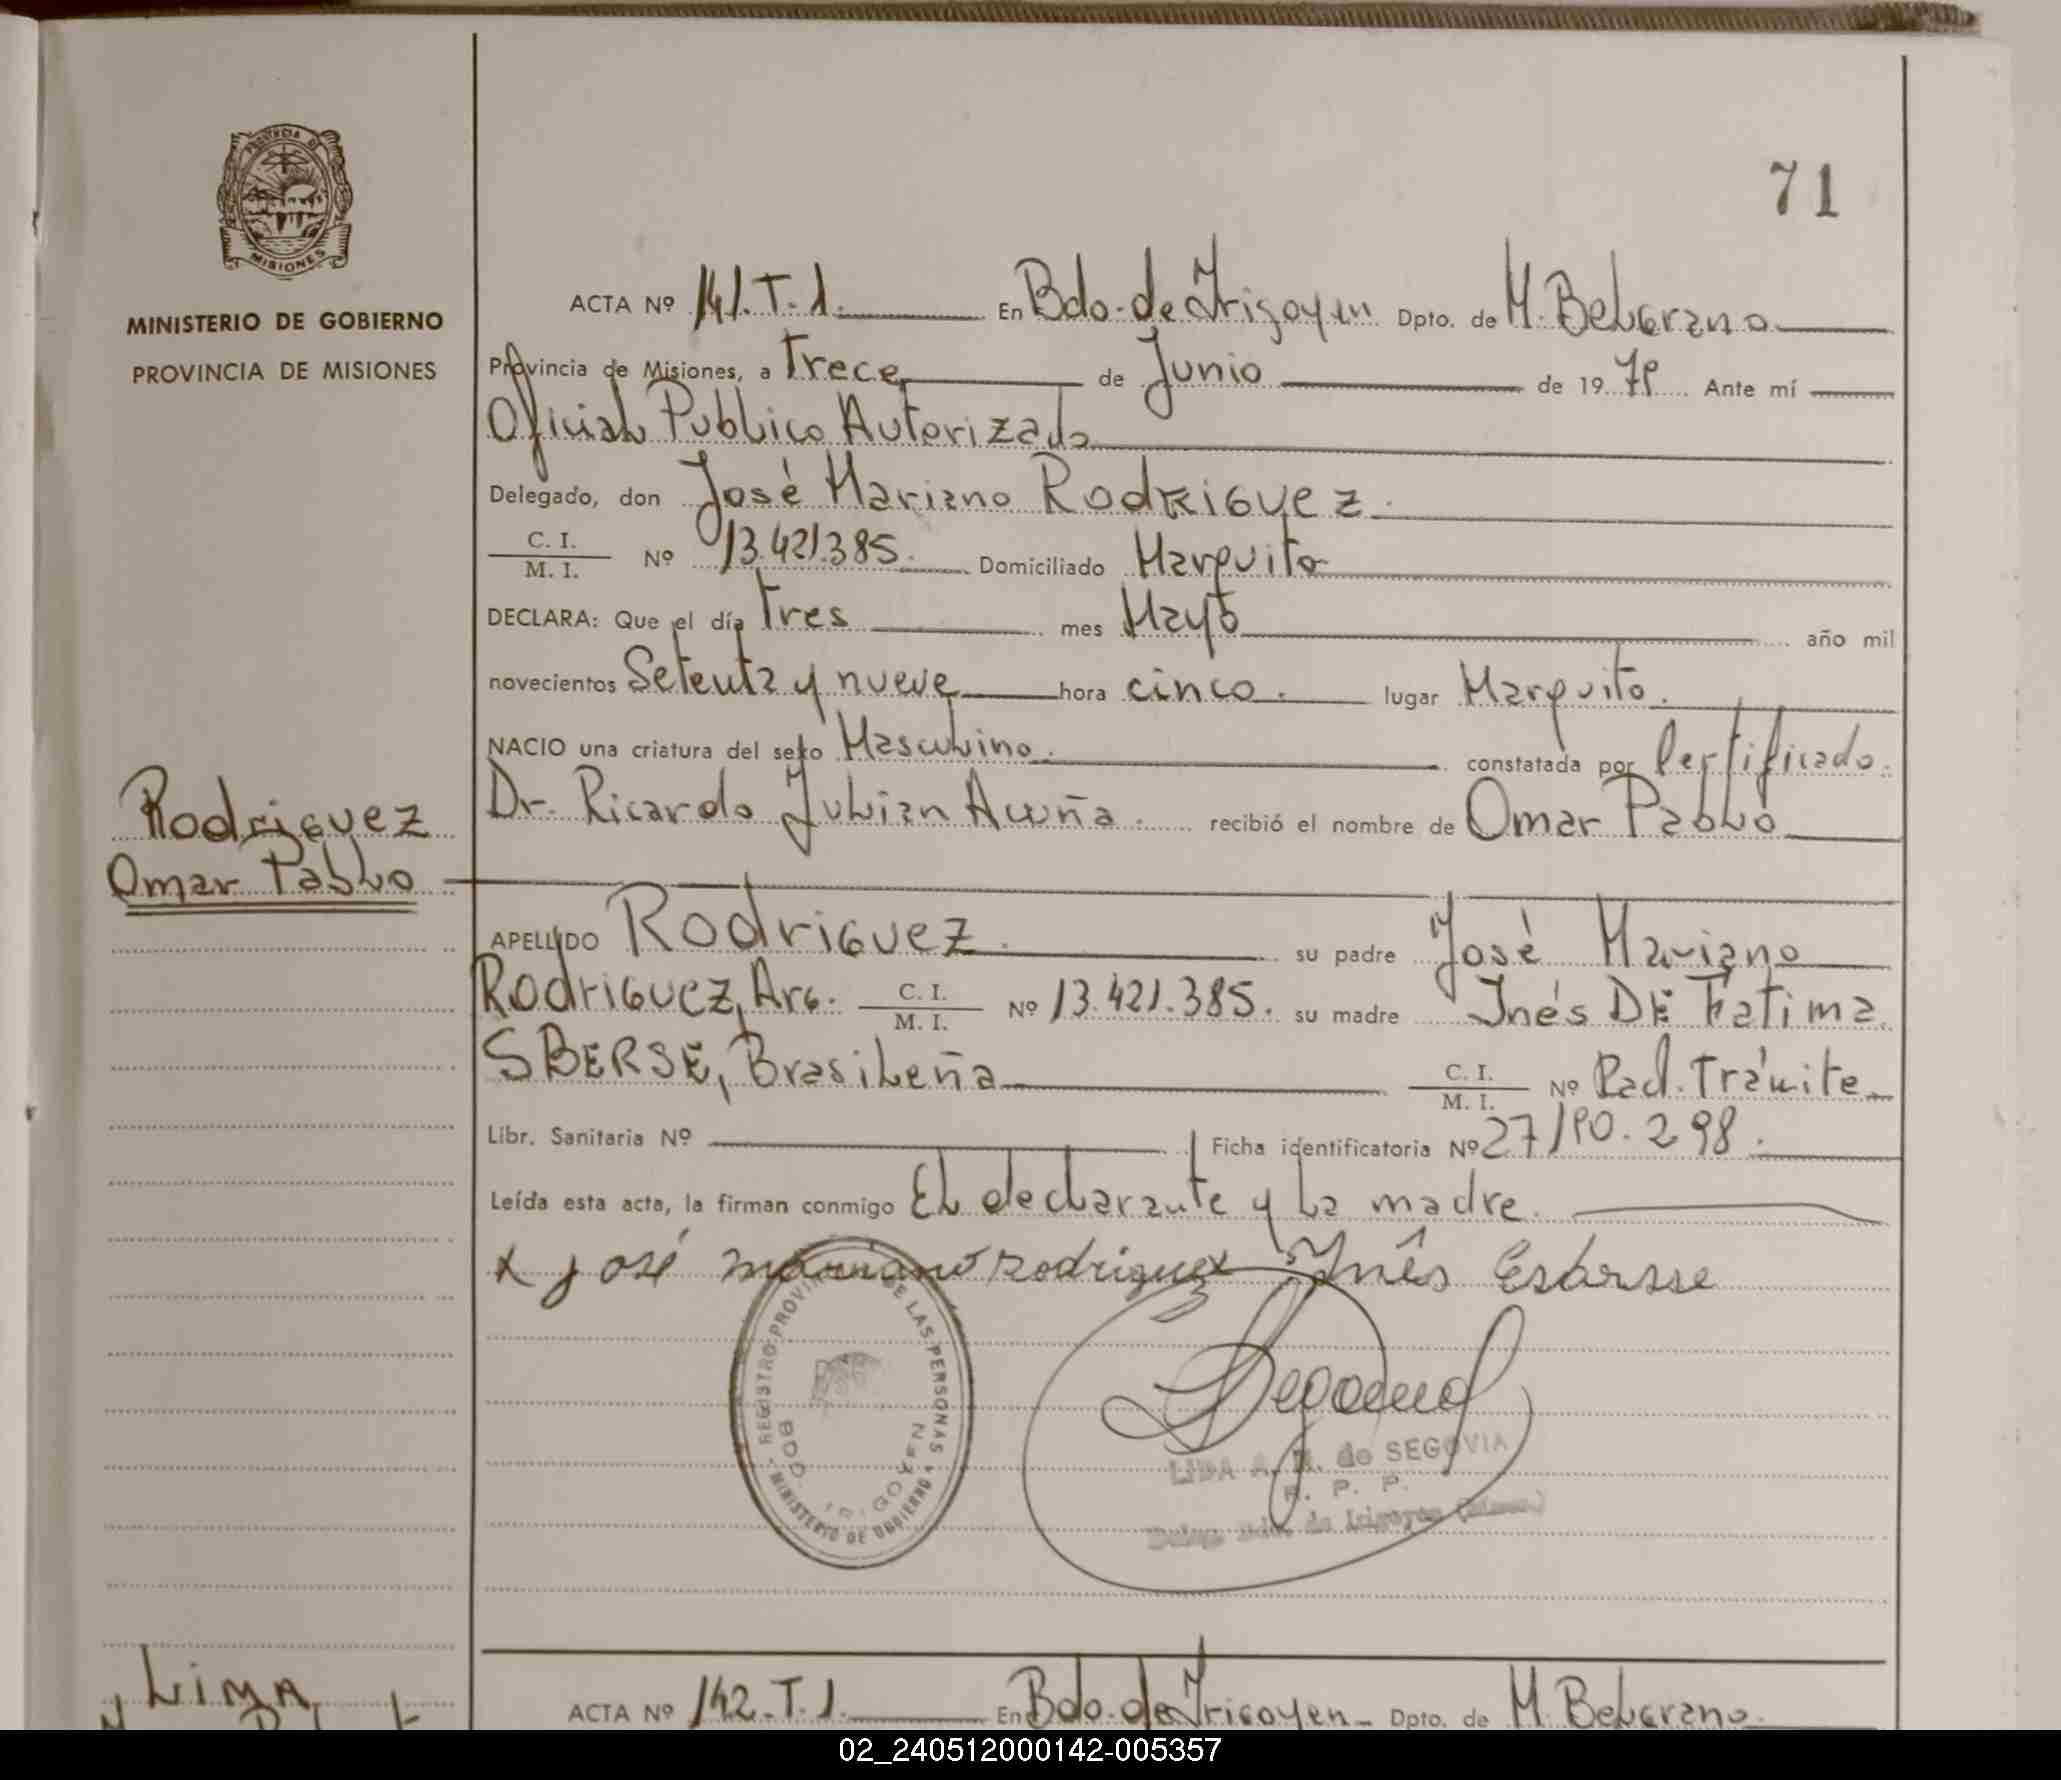 PROVINCIA DE
MISIONES
MINISTERIO DE GOBIERNO
PROVINCIA DE MISIONES
71
ACTA Nº 141.T-1. En Bdo. de Irigoyen Dpto. de M. Belgrano
Provincia de Misiones, a Trece de Junio de 1979 Ante mí
Oficial Publico Autorizado
Delegado, don José Mariano Rodriguez.
C. I.
M. I.
Nº 13.421.385. Domiciliado Marquito
DECLARA: Que el día Tres mes Mayo año mil
novecientos Setenta y nueve hora cinco. lugar Marquito.
NACIO una criatura del sexo Masculino. constatada por Certificado.
Dr. Ricardo Julian Acuña. recibió el nombre de Omar Pablo
Rodriguez
Omar Pablo
APELLIDO Rodriguez. su padre José Mariano
Rodriguez, Arg. C. I.
M. I.
Nº 13.421.385. su madre Inés DE Fatima
SBERSE, Brasileña C. I.
M. I.
Nº Rad. Trámite
Libr. Sanitaria Nº Ficha identificatoria Nº 27/90.298.
Leída esta acta, la firman conmigo El declarante y La madre.
x josé mariano Rodriguez Inês Esbersse
REGISTRO PROVINCIAL DE LAS PERSONAS
MINISTERIO DE GOBIERNO
BDO. IRIGOYEN
LIDA A. M. de SEGOVIA
R. P. P.
Deleg. Bdo. de Irigoyen (Mnes.)
LIMA
ACTA Nº 142.T.1. En Bdo. de Irigoyen Dpto. de M. Belgrano
02_240512000142-005357